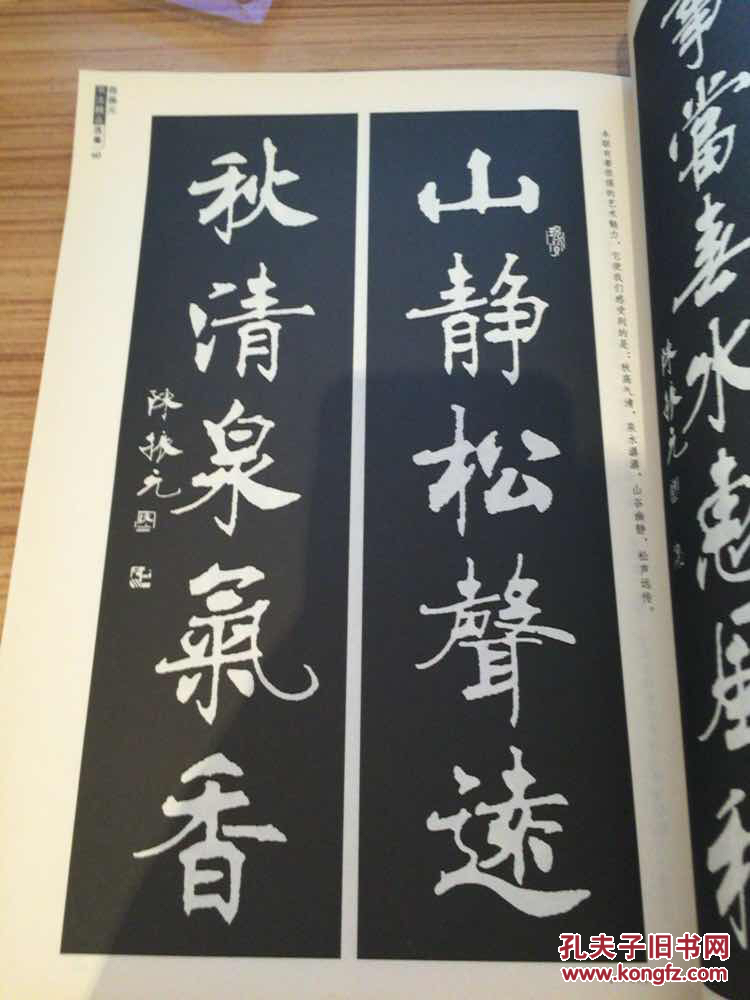 山静松聲遠
秋清泉氣香
陳振元
本联有着很强的艺术魅力，它使我们感受到的是：秋高气清，泉水潺潺，山谷幽静，松声远传。
陈振元
书法精品选集
當春水
陳振元
孔夫子旧书网
www.kongfz.com